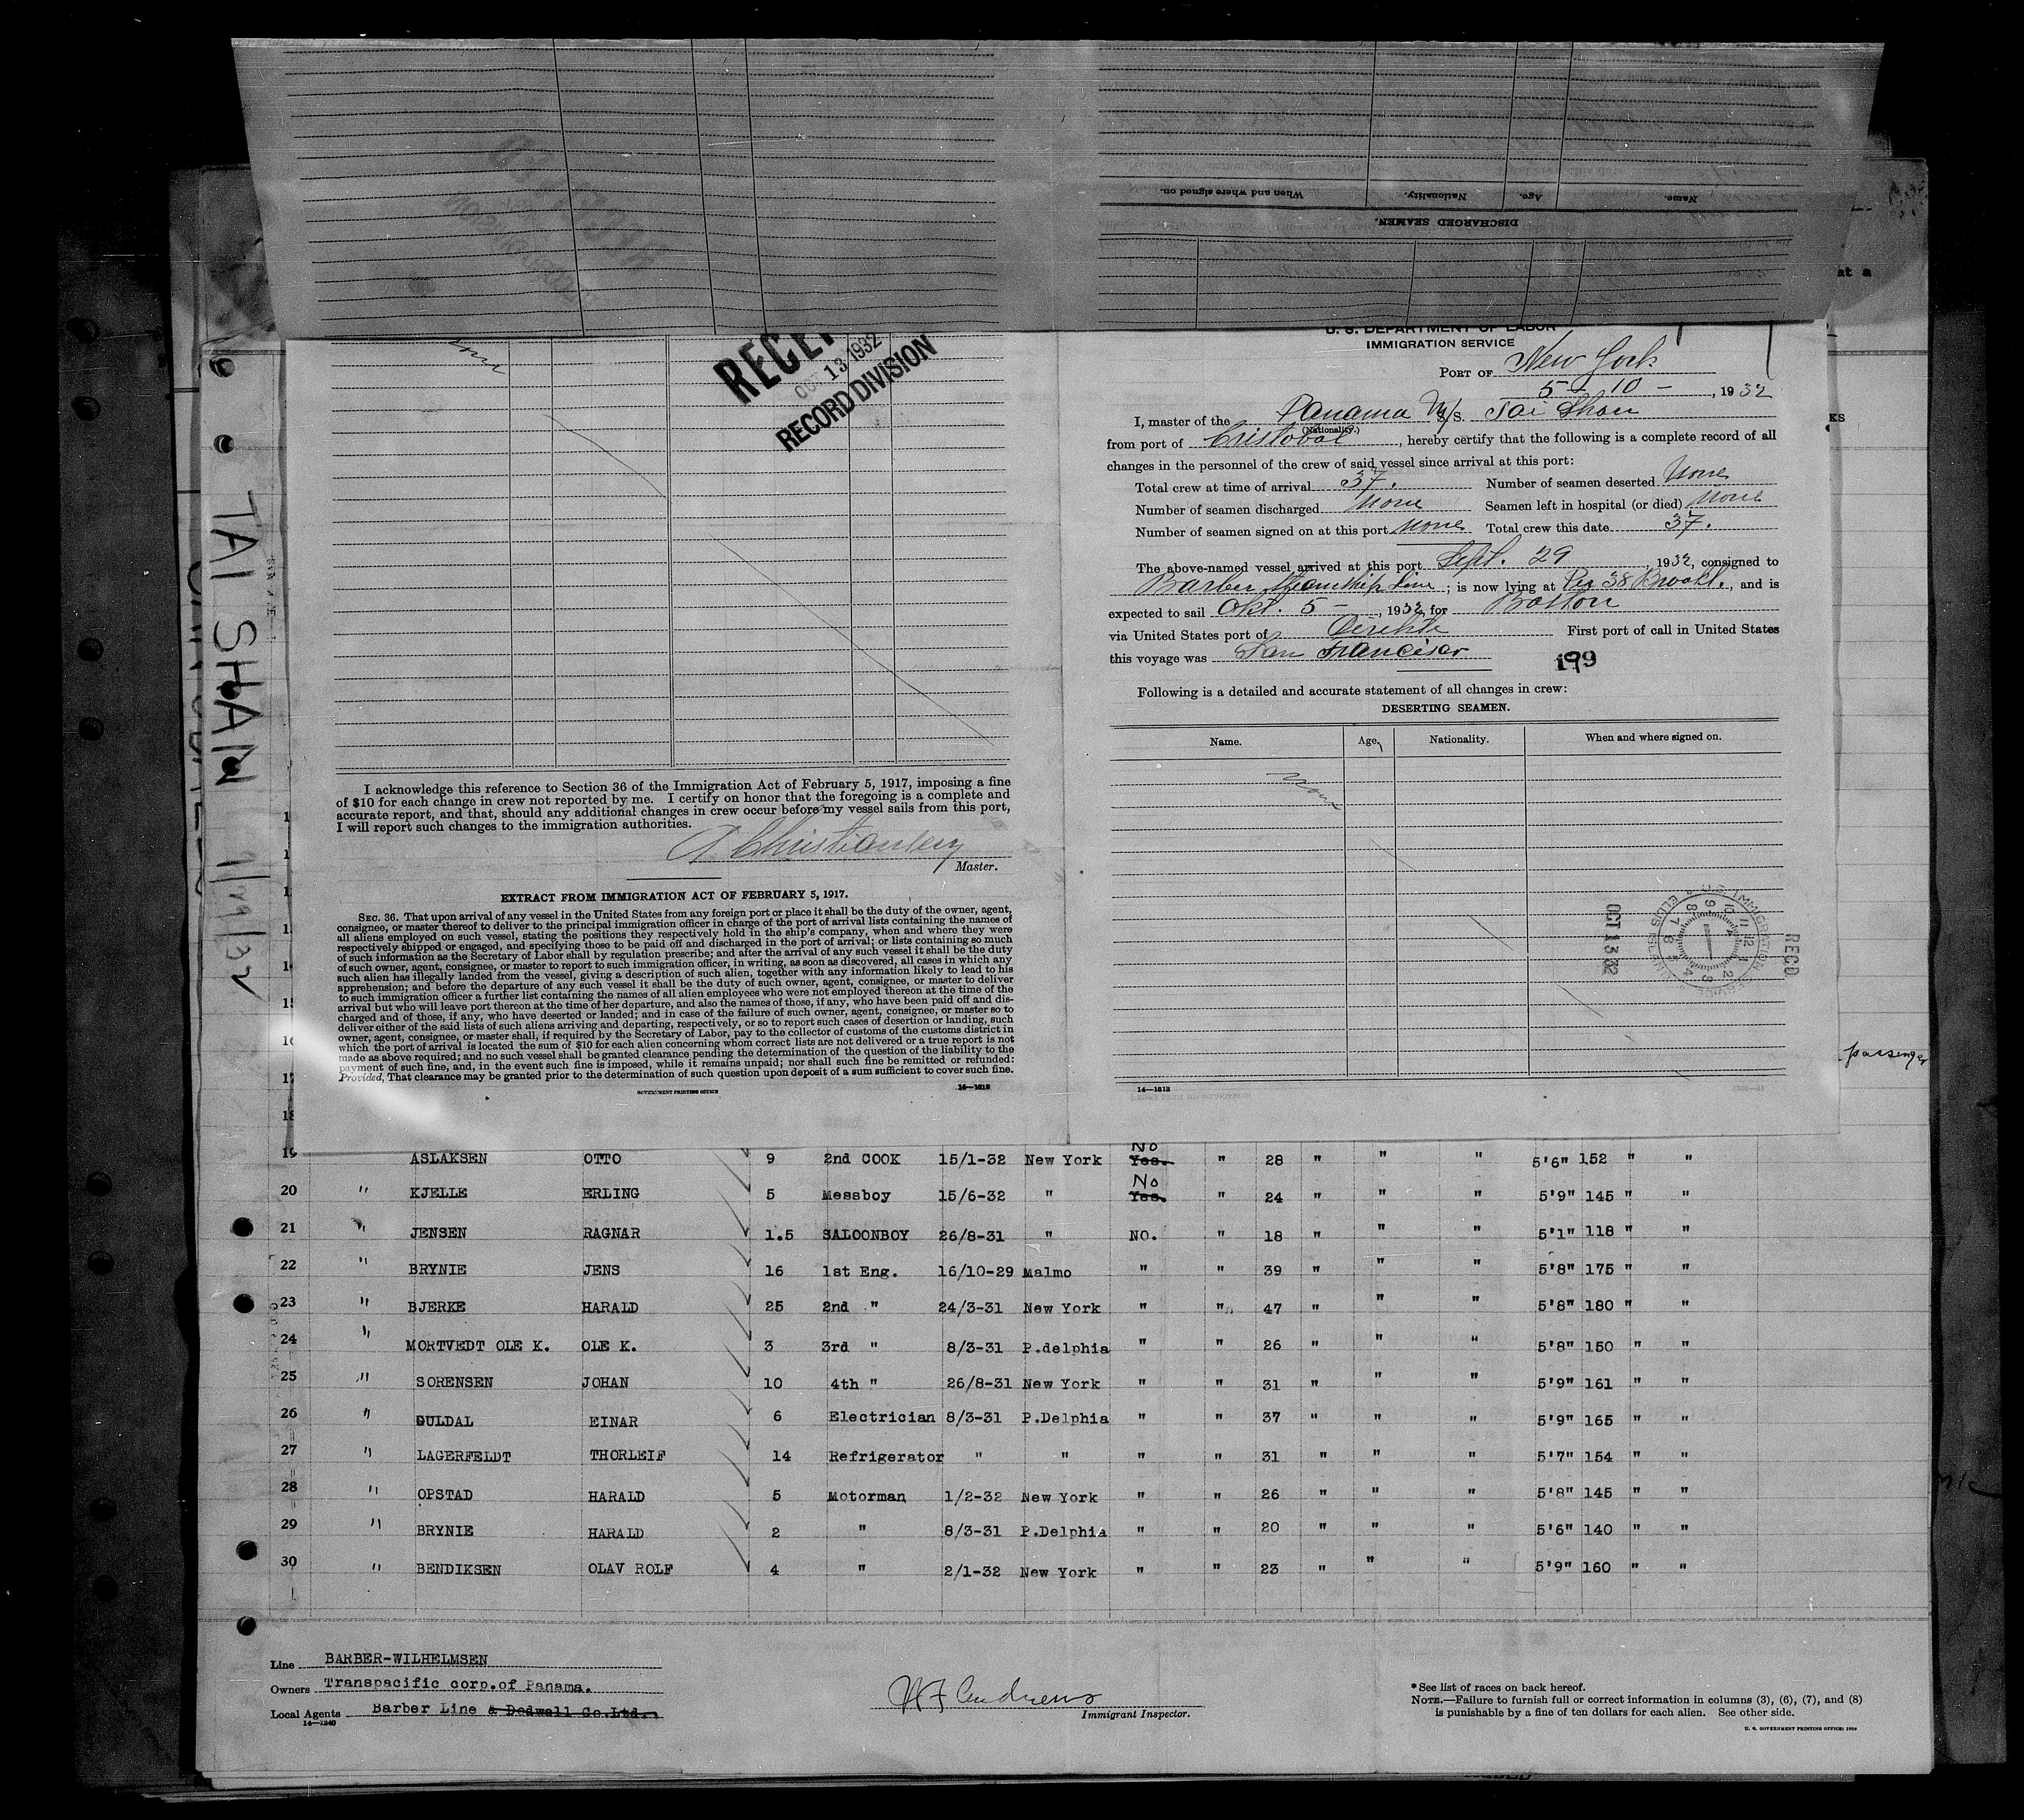 Name. Age. Nationality. When and where signed on.
DISCHARGED SEAMEN.
at a
TAI SHAN 9/29/32
None
RECEI
OCT 13 1932
RECORD DIVISION
I acknowledge this reference to Section 36 of the Immigration Act of February 5, 1917, imposing a fine
of $10 for each change in crew not reported by me. I certify on honor that the foregoing is a complete and
accurate report, and that, should any additional changes in crew occur before my vessel sails from this port,
I will report such changes to the immigration authorities.
Master.
EXTRACT FROM IMMIGRATION ACT OF FEBRUARY 5, 1917.
SEC. 36. That upon arrival of any vessel in the United States from any foreign port or place it shall be the duty of the owner, agent,
consignee, or master thereof to deliver to the principal immigration officer in charge of the port of arrival lists containing the names of
all aliens employed on such vessel, stating the positions they respectively hold in the ship's company, when and where they were
respectively shipped or engaged, and specifying those to be paid off and discharged in the port of arrival; or lists containing so much
of such information as the Secretary of Labor shall by regulation prescribe; and after the arrival of any such vessel it shall be the duty
of such owner, agent, consignee, or master to report to such immigration officer, in writing, as soon as discovered, all cases in which any
such alien has illegally landed from the vessel, giving a description of such alien, together with any information likely to lead to his
apprehension; and before the departure of any such vessel it shall be the duty of such owner, agent, consignee, or master to deliver
to such immigration officer a further list containing the names of all alien employees who were not employed thereon at the time of the
arrival but who will leave port thereon at the time of her departure, and also the names of those, if any, who have been paid off and dis-
charged and of those, if any, who have deserted or landed; and in case of the failure of such owner, agent, consignee, or master so to
deliver either of the said lists of such aliens arriving and departing, respectively, or so to report such cases of desertion or landing, such
owner, agent, consignee, or master shall, if required by the Secretary of Labor, pay to the collector of customs of the customs district in
which the port of arrival is located the sum of $10 for each alien concerning whom correct lists are not delivered or a true report is not
made as above required; and no such vessel shall be granted clearance pending the determination of the question of the liability to the
payment of such fine, and, in the event such fine is imposed, while it remains unpaid; nor shall such fine be remitted or refunded:
Provided, That clearance may be granted prior to the determination of such question upon deposit of a sum sufficient to cover such fine.
GOVERNMENT PRINTING OFFICE 14—1618
U. S. DEPARTMENT OF LABOR
IMMIGRATION SERVICE
PORT OF New York
5 - 10 - , 1932
I, master of the Panama M/S. Tai Shan
(Nationality.)
from port of Cristobal, hereby certify that the following is a complete record of all
changes in the personnel of the crew of said vessel since arrival at this port:
Total crew at time of arrival 37. Number of seamen deserted None
Number of seamen discharged None Seamen left in hospital (or died) None
Number of seamen signed on at this port None Total crew this date 37.
The above-named vessel arrived at this port Sept. 29, 1932, consigned to
Barber Steamship Line; is now lying at Pier 38 Brookl., and is
expected to sail Okt. 5 -, 1932, for Boston
via United States port of Direkte First port of call in United States
this voyage was San Francisco
199
Following is a detailed and accurate statement of all changes in crew:
DESERTING SEAMEN.
Name. Age. Nationality. When and where signed on.
None
RECD
OCT 13 32
14—1618
passenger
19 ASLAKSEN OTTO 9 2nd COOK 15/1-32 New York No Yes. " 28 " " " 5'6" 152 " "
20 " KJELLE ERLING 5 Messboy 15/6-32 " No Yes. " 24 " " " 5'9" 145 " "
21 " JENSEN RAGNAR 1.5 SALOONBOY 26/8-31 " NO. " 18 " " " 5'1" 118 " "
22 " BRYNIE JENS 16 1st Eng. 16/10-29 Malmo " " 39 " " " 5'8" 175 " "
23 " BJERKE HARALD 25 2nd " 24/3-31 New York " " 47 " " " 5'8" 180 " "
24 " MORTVEDT OLE K. OLE K. 3 3rd " 8/3-31 P.delphia " " 26 " " " 5'8" 150 " "
25 " SORENSEN JOHAN 10 4th " 26/8-31 New York " " 31 " " " 5'9" 161 " "
26 " GULDAL EINAR 6 Electrician 8/3-31 P.Delphia " " 37 " " " 5'9" 165 " "
27 " LAGERFELDT THORLEIF 14 Refrigerator " " " " 31 " " " 5'7" 154 " "
28 " OPSTAD HARALD 5 Motorman 1/2-32 New York " " 26 " " " 5'8" 145 " "
29 " BRYNIE HARALD 2 " 8/3-31 P.Delphia " " 20 " " " 5'6" 140 " "
30 " BENDIKSEN OLAV ROLF 4 " 2/1-32 New York " " 23 " " " 5'9" 160 " "
Line BARBER-WILHELMSEN
Owners Transpacific corp.of Panama.
Local Agents Barber Line & Dodwell Co.Ltd.
14—1240
Immigrant Inspector.
* See list of races on back hereof.
NOTE.—Failure to furnish full or correct information in columns (3), (6), (7), and (8)
is punishable by a fine of ten dollars for each alien. See other side.
U. S. GOVERNMENT PRINTING OFFICE: 1929